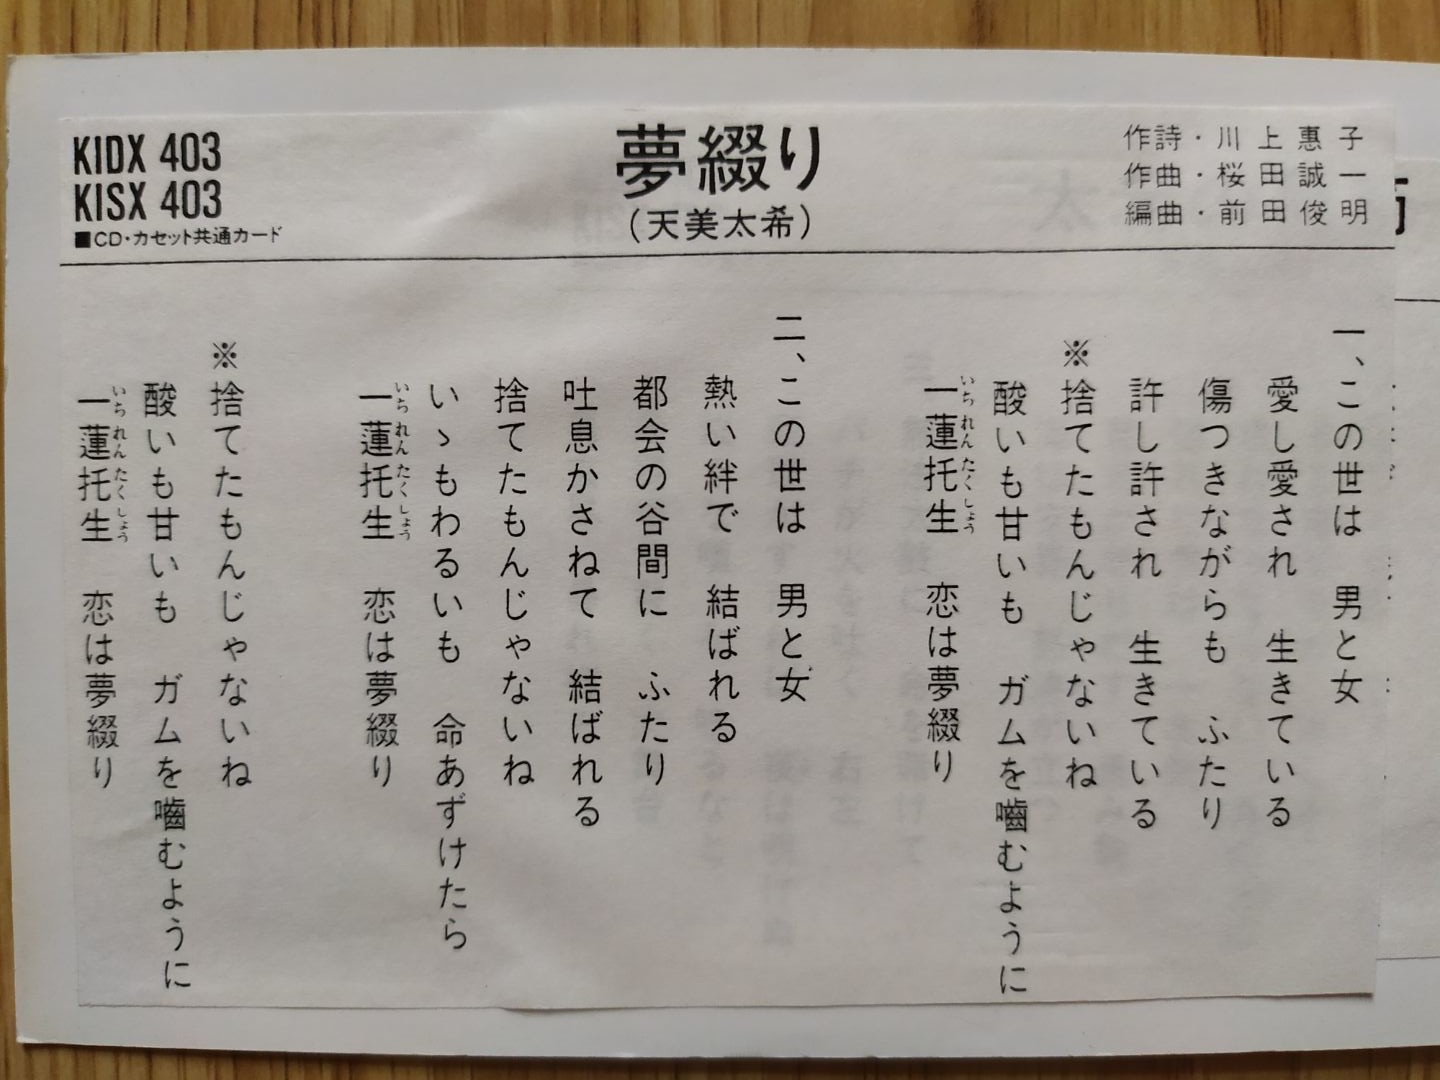 KIDX 403
KISX 403
■CD・カセット共通カード
夢綴り
(天美太希)
作詩・川上惠子
作曲・桜田誠一
編曲・前田俊明
一、この世は　男と女
愛し愛され　生きている
傷つきながらも　ふたり
許し許され　生きている
※捨てたもんじゃないね
酸いも甘いも　ガムを嚙むように
一蓮托生　恋は夢綴り
いちれんたくしょう
二、この世は　男と女
熱い絆で　結ばれる
都会の谷間に　ふたり
吐息かさねて　結ばれる
捨てたもんじゃないね
いゝもわるいも　命あずけたら
一蓮托生　恋は夢綴り
いちれんたくしょう
※捨てたもんじゃないね
酸いも甘いも　ガムを嚙むように
一蓮托生　恋は夢綴り
いちれんたくしょう